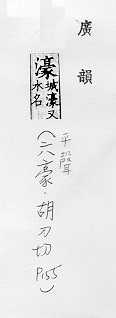 廣韻
濠城濠又水名
平聲
(六豪·胡刀切 P155)